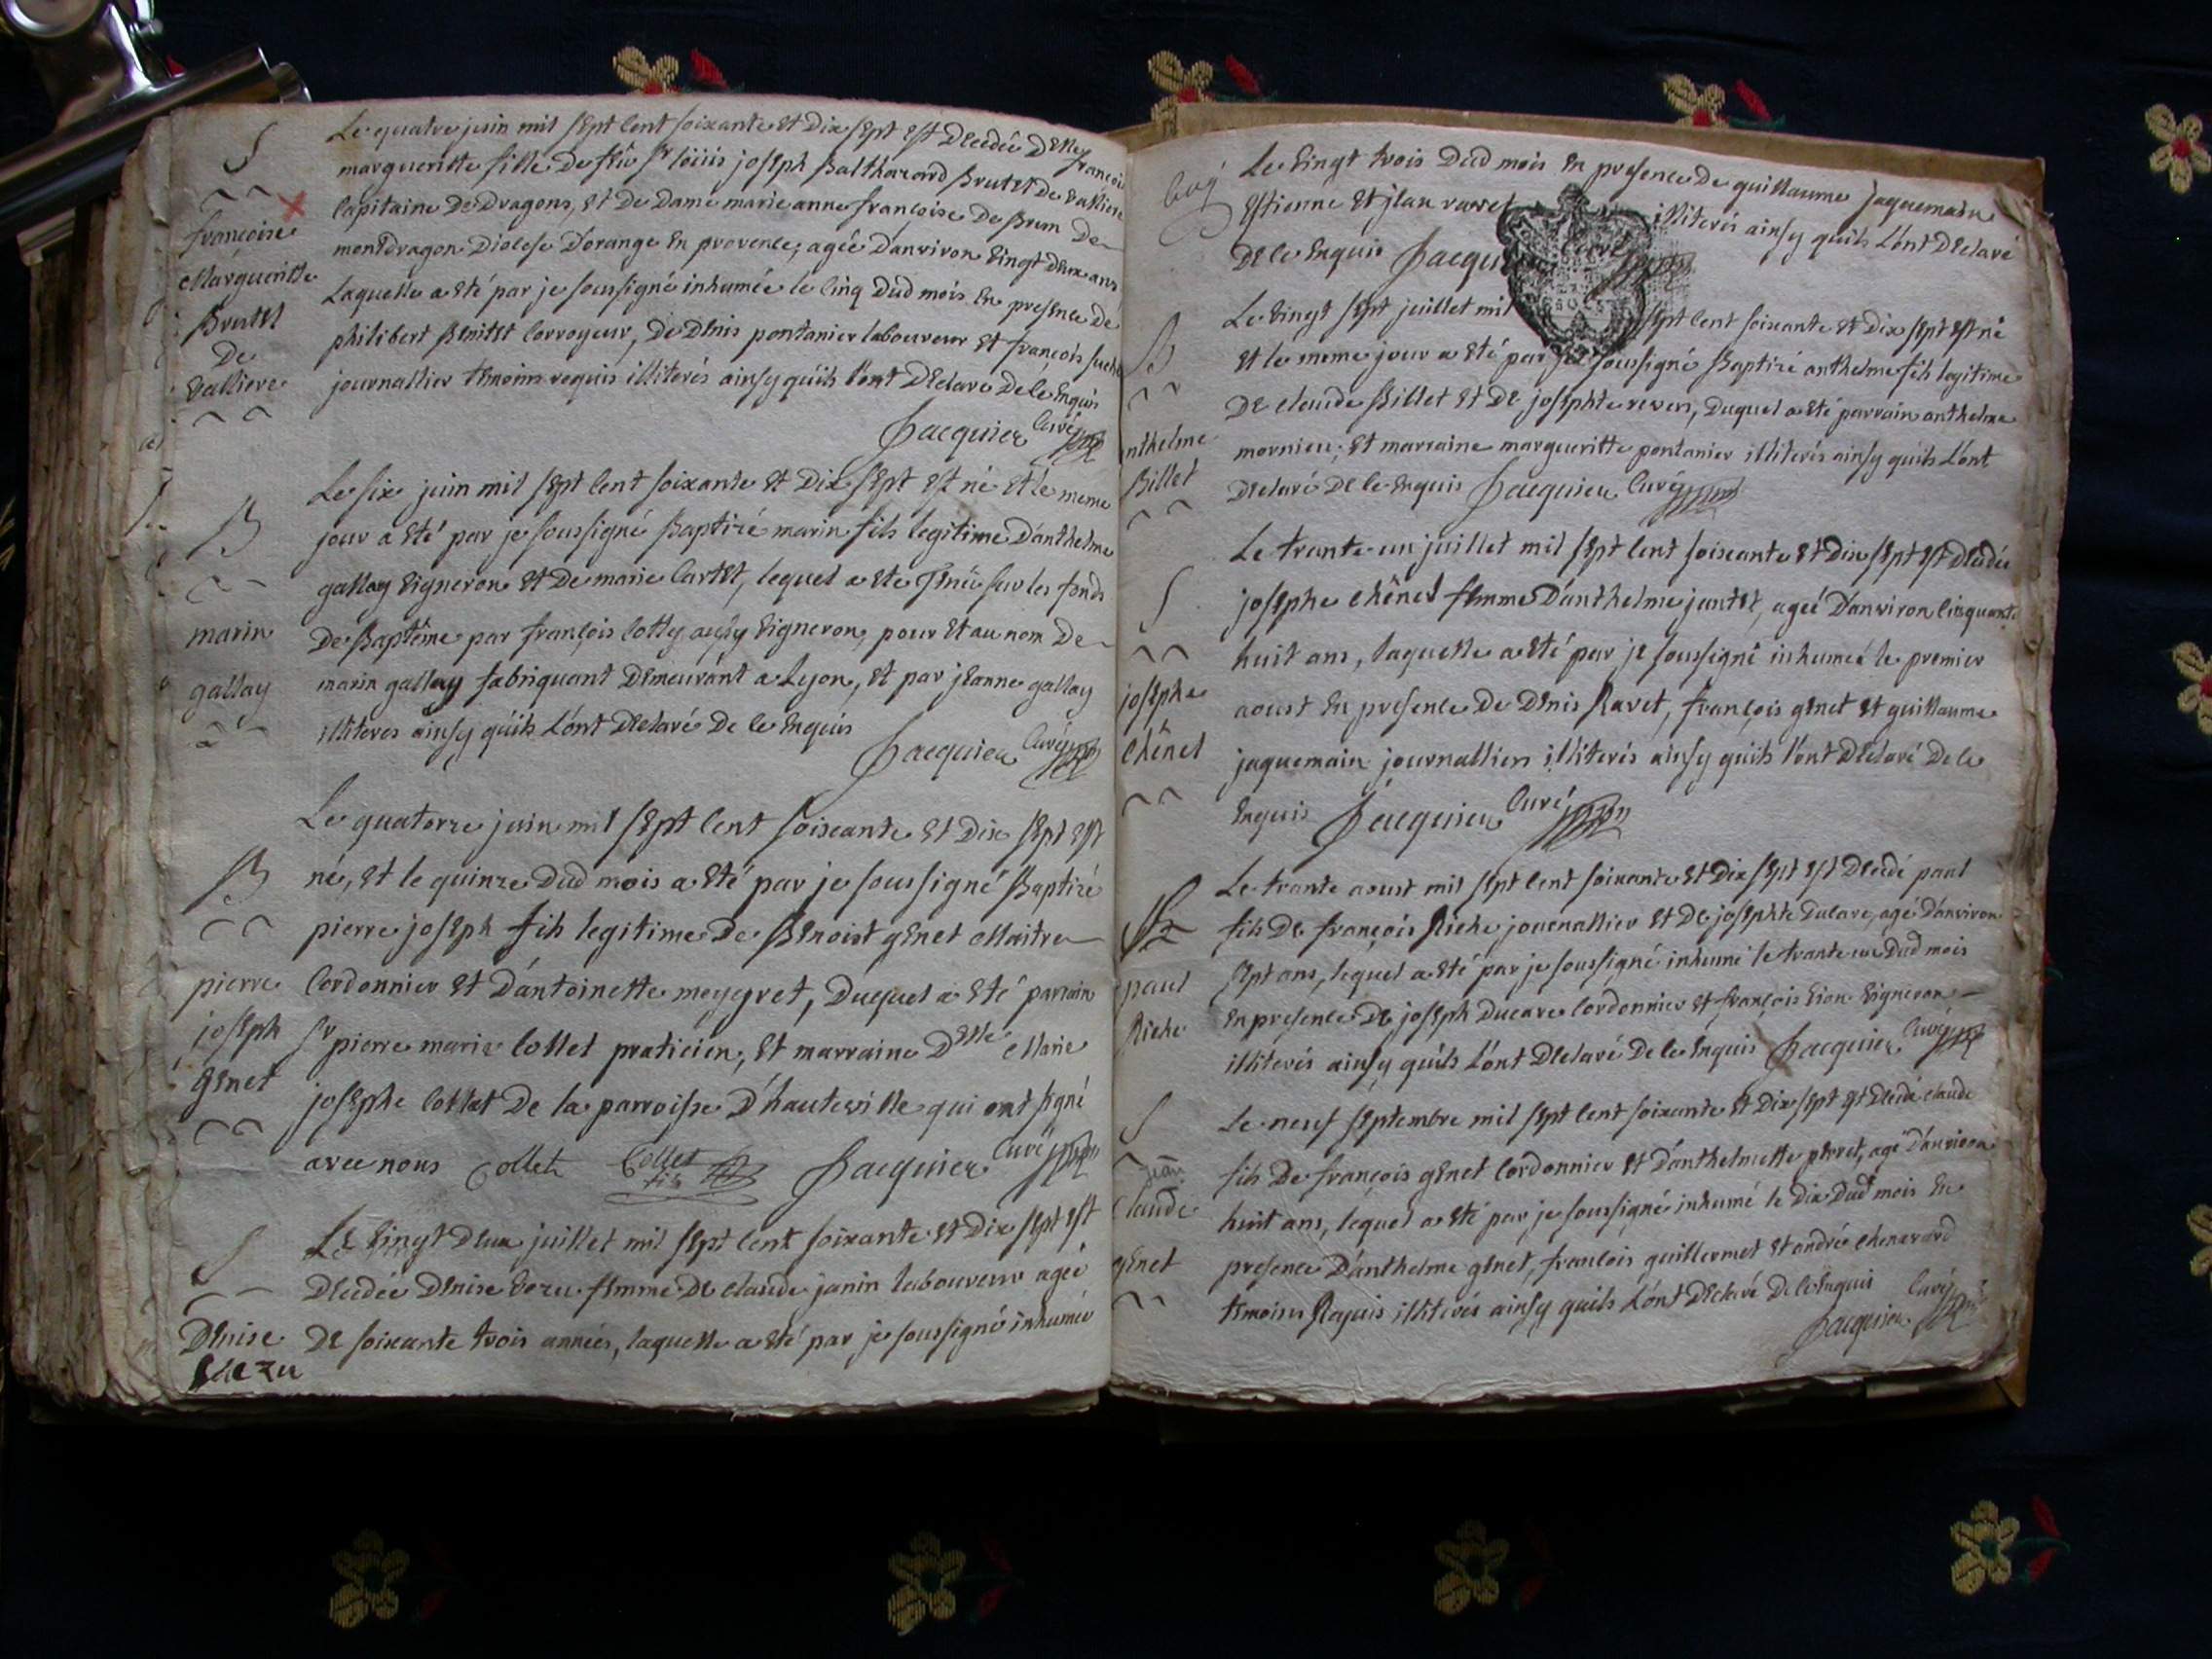 S
françoise
Margueritte
Brutet
De
valliere
Le quatre juin mil sept cent soixante et dix sept est Decedée Delle françoise
margueritte fille De feu Sr loüis joseph Balthazard Brutet De valliere
capitaine De Dragons, et De Dame marie anne françoise De Brun De
montdragon Diocese D'orange En provence, agée D'anviron vingt Deux ans
Laquelle a eté par je soussigné inhumée le cinq Dud mois En presence De
philibert Benitet corroyeur, De Denis pontanier laboureur et francois
journallier temoins requis illiterés ainsy qu'ils l'ont Declaré De ce Enquis
Jacquier Curé
B
marin
gallay
Le six juin mil sept cent soixante et Dix sept est né et le meme
jour a eté par je soussigné Baptizé marin fils legitime D'anthelme
gallay vigneron et De marie Cartet, lequel a ete Tenu sur les fonds
De Baptême par françois cotty aussy vigneron, pour et au nom De
marin gallay fabriquant Demeurant a Lyon, et par jeanne gallay
illiteres ainsy qu'ils L'ont Declaré De ce Enquis
Jacquier Curé
B
pierre
joseph
genet
Le quatorze juin mil sept cent soixante et Dix sept est
né, et le quinze Dud mois a eté par je soussigné Baptizé
pierre joseph fils legitime De Benoist genet Maitre
Cordonnier et D'antoinette meygret, Duquel a eté parrain
Sr pierre marie Collet praticien, et marraine Delle Marie
josephe Collet De la parroisse D'hauteville qui ont signé
avec nous Collet Collet fils Jacquier Curé
S
Denise
Vezu
Le vingt Deux juillet mil sept cent soixante et Dix sept est
Decedée Denise vezu femme De claude janin laboureur agée
De soixante trois années, laquelle a eté par je soussigné inhumée
Le vingt trois Dud mois En presence De guillaume Jaquemain
Estienne et jean ravet illiterés ainsy quils L'ont Declaré
De ce Enquis Jacquier Curé
B
nthelme
Billet
Le vingt sept juillet mil sept cent soixante et Dix sept est né
et le meme jour a eté par je soussigné Baptizé anthelme fils legitime
De claude Billet et De josephte reven, Duquel a eté parrain anthelme
mornieu, et marraine margueritte pontanier illiterés ainsy qu'ils L'ont
Declaré De ce Enquis Jacquier Curé
S
josephe
Chênel
Le trante un juillet mil sept cent soixante et Dix sept est Decedée
josephe Chênel femme D'anthelme jantet, agée D'anviron cinquante
huit ans, laquelle a eté par je soussigné inhumeé le premier
aoust En presence De Denis Ravet, françois genet et guillaume
jaquemain journalliers illiterés ainsy qu'ils l'ont Declaré De ce
Enquis Jacquier Curé
S
paul
Riche
Le trante aoust mil sept cent soixante et Dix sept est Decedé paul
fils De françois Riche journallier et De josephte Ducare, agé D'anviron
sept ans, lequel a eté par je soussigné inhumé le trante un Dud mois
En presence De joseph Ducare cordonnier et françois vion vigneron
illiterés ainsy qu'ils L'ont Declaré De ce Enquis Jacquier Curé
S
jean
Claude
genet
Le neuf septembre mil sept cent soixante et Dix sept est Decedé claude
fils De françois genet Cordonnier et D'anthelmette perret, agé D'anviron
huit ans, lequel a eté par je soussigné inhumé le Dix Dud mois En
presence D'anthelme genet, francois guillermet et andré chenavard
temoins Requis illiterés ainsy quils L'ont Declaré De ce Enquis
Jacquier Curé